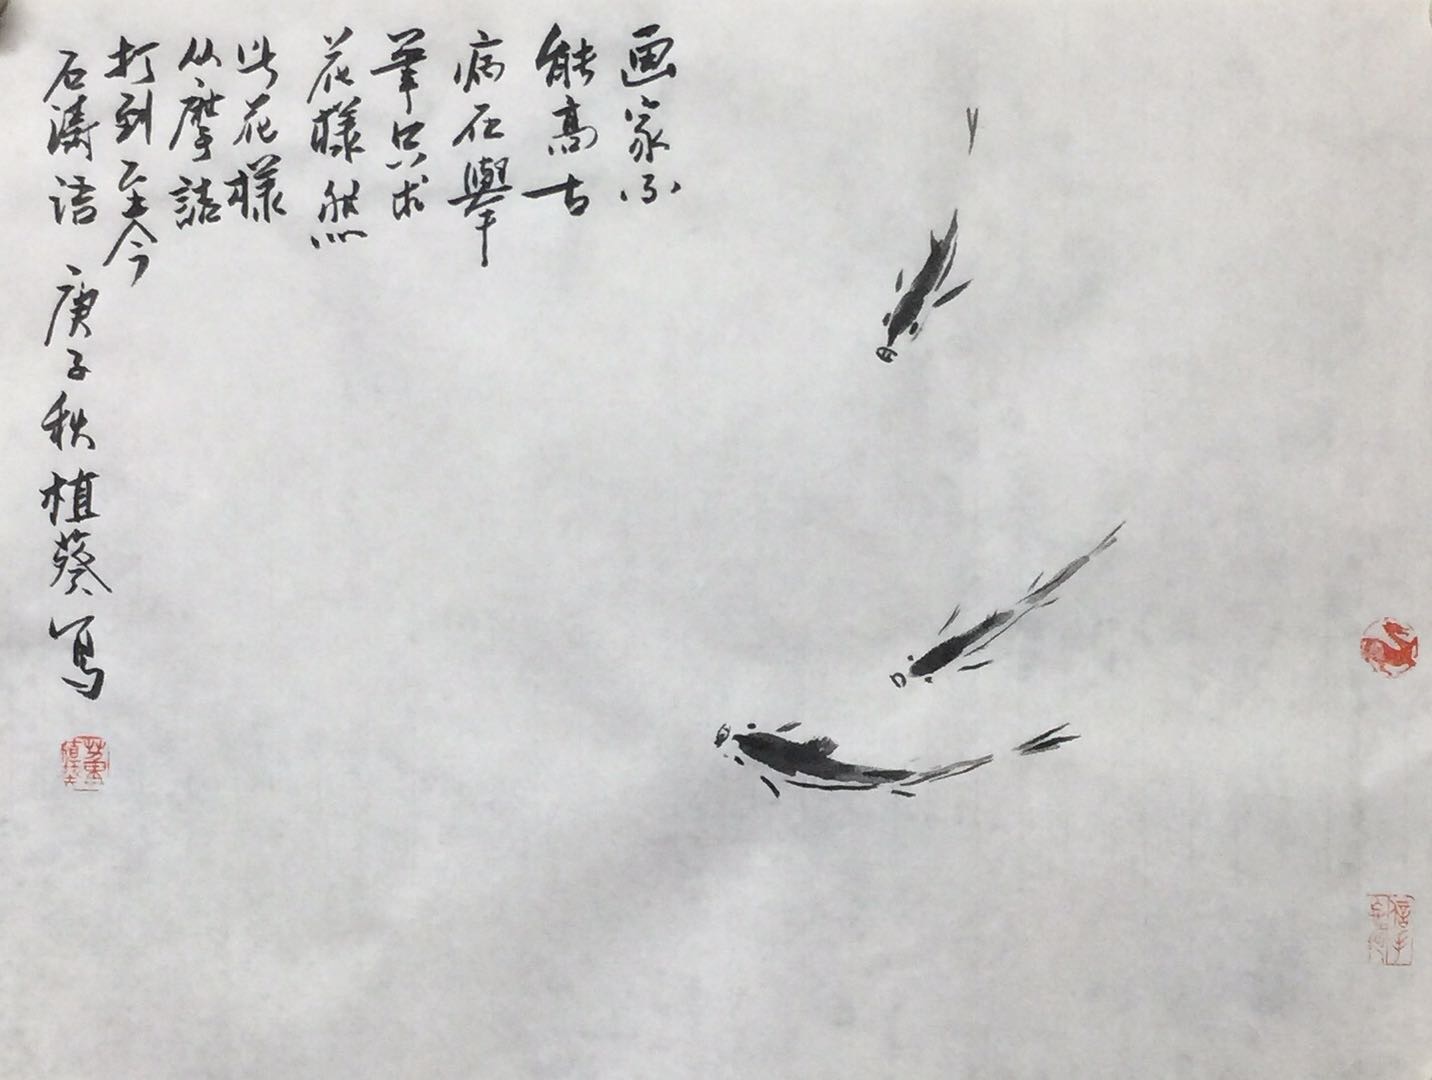 画家不
能高古
病在舉
筆只求
花樣然
此花樣
从摩詰
打到至今
石濤语 庚子秋植葵写